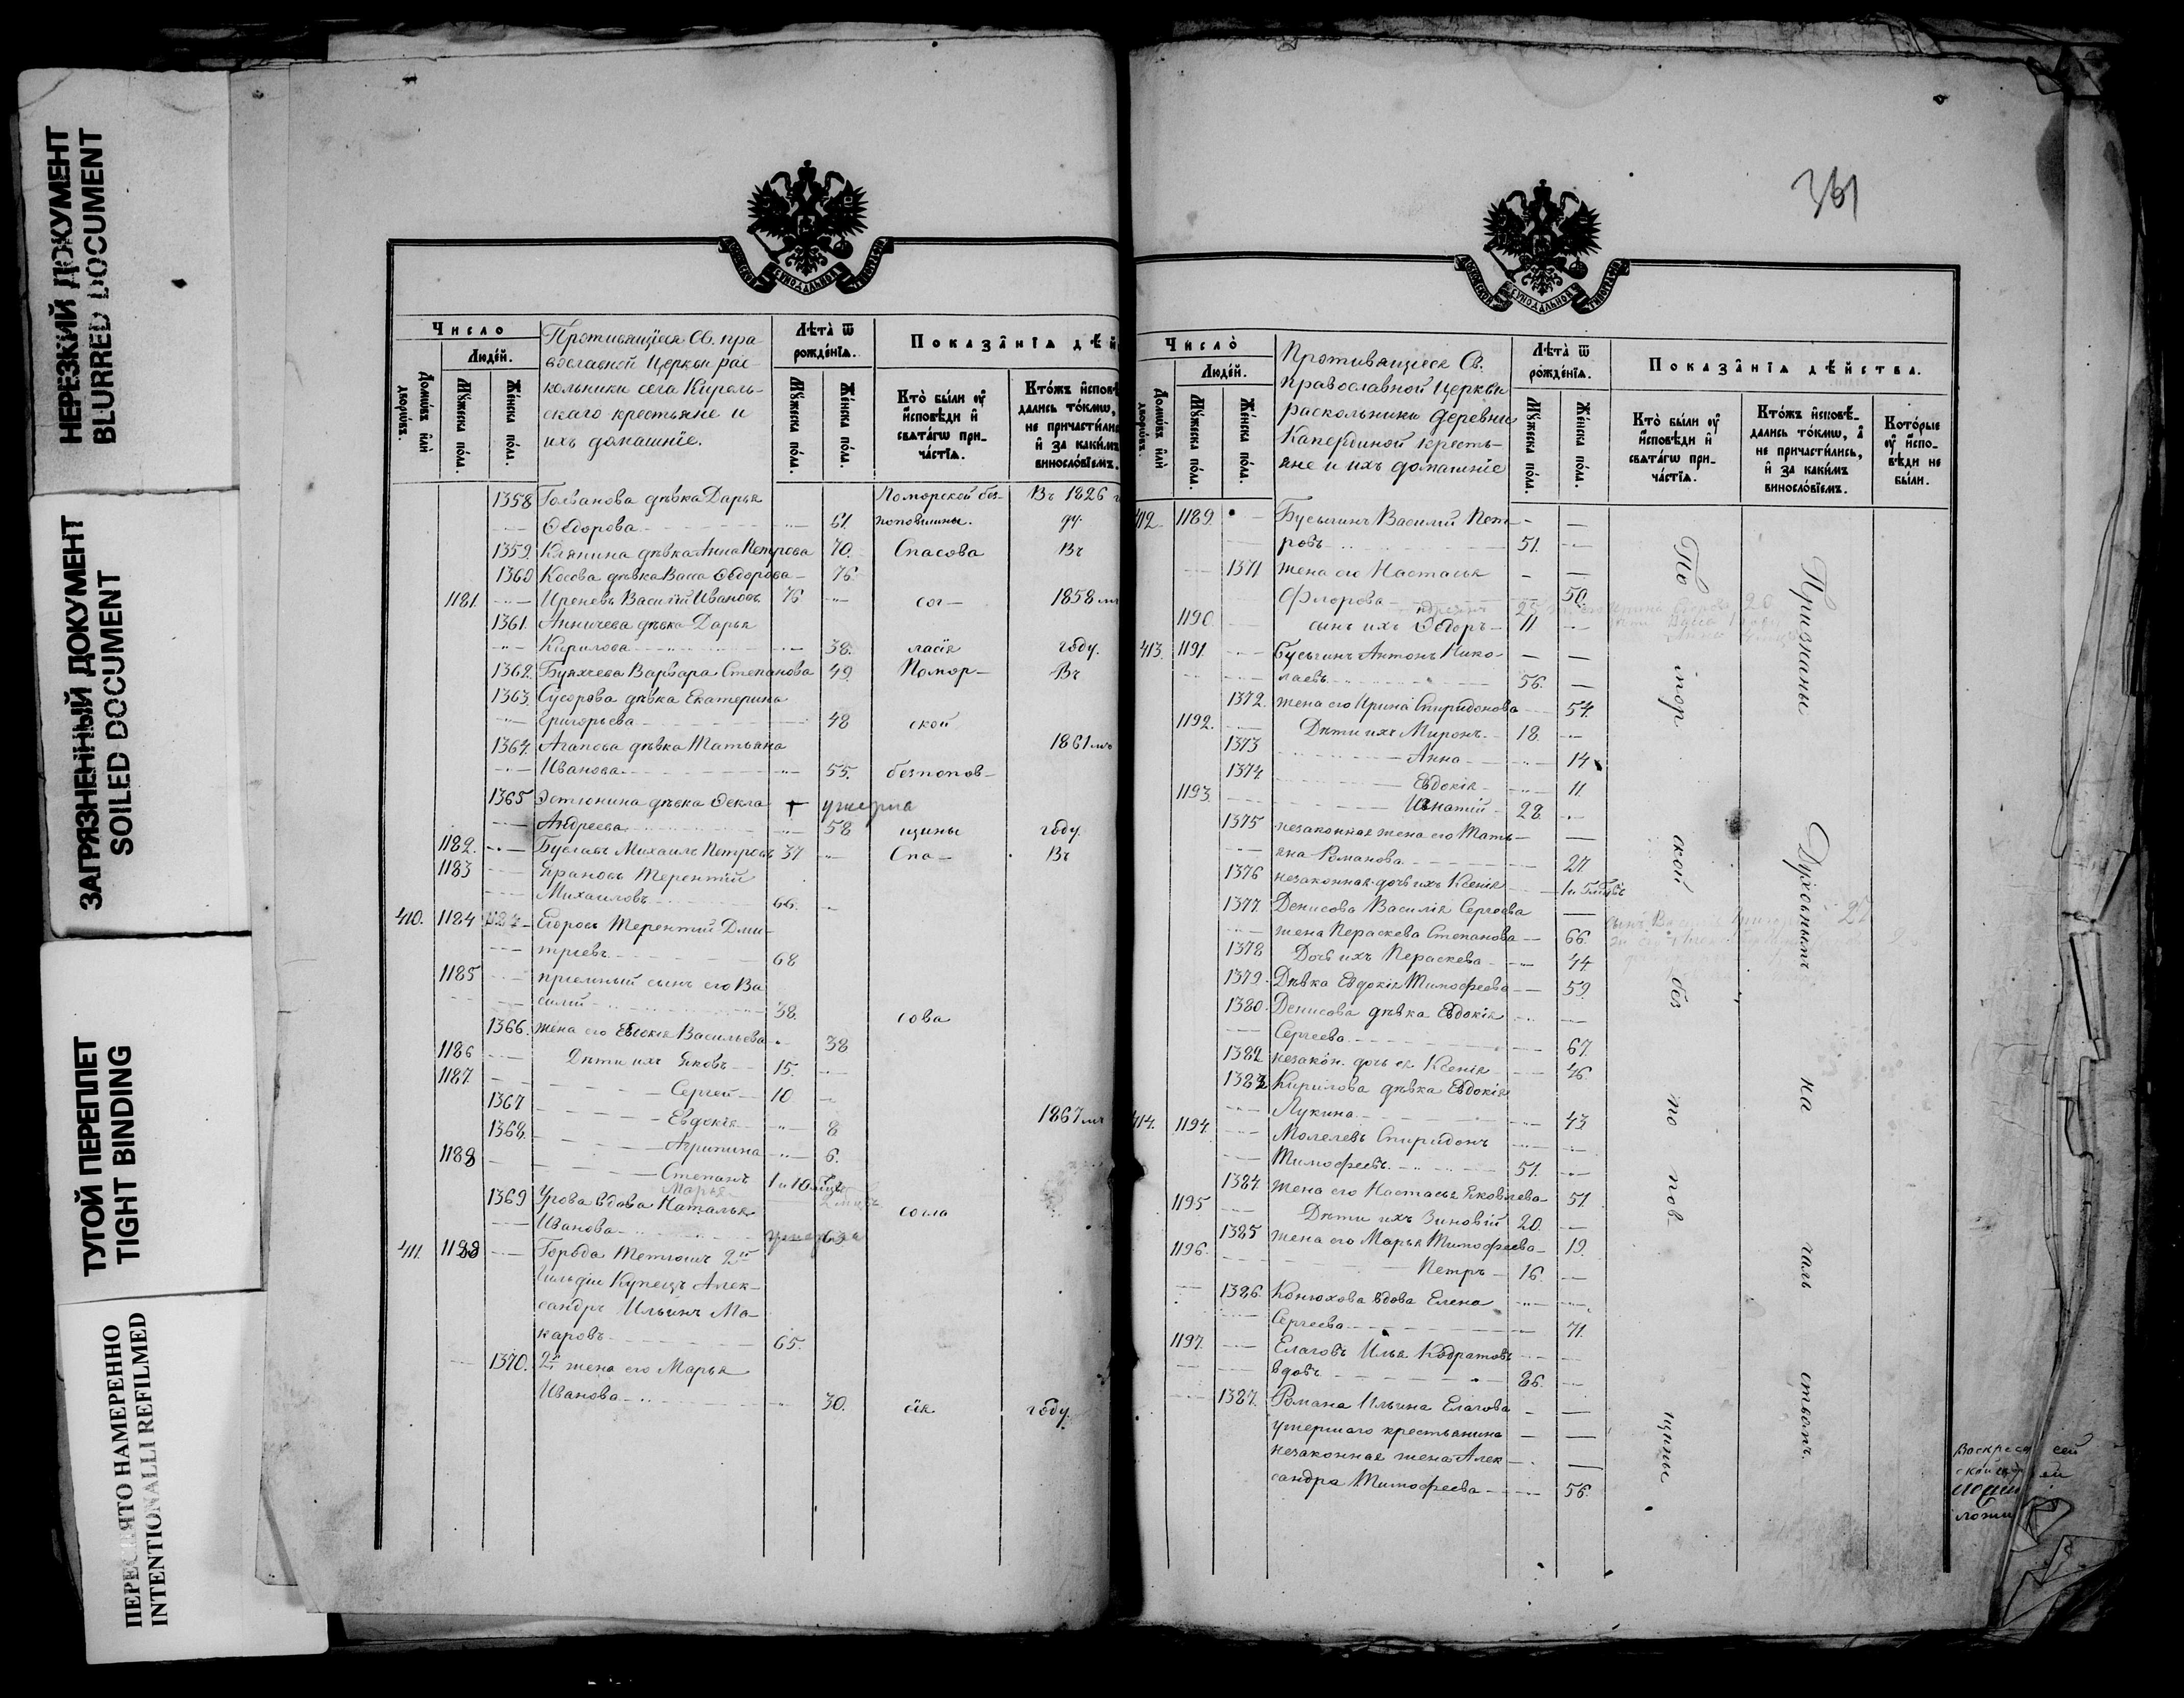 НЕРЕЗКИЙ ДОКУМЕНТ
BLURRED DOCUMENT
ЗАГРЯЗНЕННЫЙ ДОКУМЕНТ
SOILED DOCUMENT
ТУГОЙ ПЕРЕПЛЕТ
TIGHT BINDING
ПЕРЕСНЯТО НАМЕРЕННО
INTENTIONALLI REFILMED
Число
Людей.
Домѡвъ или дворѡвъ.
Мꙋжеска пола.
Женска пола.
Противящіеся Св. пра
вославной Церкви рас-
кольники села Кирель-
скаго крестьяне и
ихъ домашніе.
Лѣта ѿ
рожденїѧ.
Мꙋжеска пола.
Женска пола.
Показанїѧ дѣй
Кто были ꙋ
исповѣди и
свѧтагѡ при-
частїѧ.
Ктожъ исповѣ
дались токмѡ,
не причастились
и за какимъ
винословїемъ.
1358 Голванова дѣвка Дарья Поморской без- Въ 1826 г
Ѳедорова 61. поповщины. ду.
1359. Клянина дѣвка Анна Петрова 70. Спасова Въ
1360 Косова дѣвка Васса Ѳедорова 76.
1181. Иреневъ Василій Ивановъ 76 сог- 1858 мъ
1361. Анничева дѣвка Дарья
Кирилова 38. ласія году.
1362. Буяхчева Варвара Степанова 49. Помор- Въ
1363. Сусорова дѣвка Екатерина
Григорьева 48 ской
1364. Агапова дѣвка Татьяна 1861 мъ
Иванова 55. безпопов-
1365 Эстюнина дѣвка Ѳекла † умерла
Андреева 58 щины году.
1182. Буславъ Михаилъ Петровъ 37 Спа- Въ
1183 Ярановъ Терентій
Михаиловъ 66.
410. 1184 Егоровъ Терентій Дми-
тріевъ 68
1185 пріемный сынъ его Ва
силій 38. сова
1366. жена его Евдокія Васильева 38
1186 Дѣти ихъ Яковъ 15.
1187 Сергей 10
1367 Евдокія 8 1867 мъ
1368. Агрипина 6.
1188 Степанъ 1 и 10 мцвъ
Марья
1369 Урова вдова Наталья согла
Иванова умерла 63
411. 1188 Горьда Тетюшъ 2й
Гильдіи Купецъ Алек-
сандръ Ильинъ Ма-
каровъ 65.
1370. 2я жена его Марья
Иванова 30. сія году.
361
Число
Людей.
Домѡвъ или дворѡвъ.
Мꙋжеска пола.
Женска пола.
Противящіеся Св.
Православной Церкви
раскольники деревни
Капердиной кресть-
яне и ихъ домашніе
Лѣта ѿ
рожденїѧ.
Мꙋжеска пола.
Женска пола.
Показанїѧ дѣйства.
Кто были ꙋ
исповѣди и
свѧтагѡ при-
частїѧ.
Ктожъ исповѣ-
дались токмѡ, а
не причастились,
и за какимъ
винословїемъ.
Которые
ꙋ испо-
вѣди не
были.
412 1189. Бусыгинъ Василій Пет-
ровъ 51.
1371 жена его Настасья
Флорова 50.
1190. сынъ ихъ Ѳедоръ 11
413. 1191. Бусыгинъ Антонъ Нико-
лаевъ 56.
1372. жена его Ирина Спиридонова 54.
1192. Дѣти ихъ Миронъ 18.
1373 Анна 14
1374. Евдокія 11.
1193. Игнатій 28.
1375 незаконная жена его Тать-
яна Романова 27.
1376 незаконная дочь ихъ Ксенія 1 и 5 мцвъ
1377. Денисова Василія Сергеева
жена Параскева Степанова 66.
1378 Дочь ихъ Параскева 44
1379. Дѣвка Евдокія Тимофеева 59.
1380. Денисова дѣвка Евдокія
Сергеева 67.
1382 незакон. дочь ея Ксенія 46
1383 Кирилова дѣвка Евдокія
Лукина 43
414. 1194. Молелевъ Спиридонъ
Тимофеевъ 51.
1384. Жена его Настасья Яковлева 51.
1195 Дѣти ихъ Зиновій 20.
1385 жена его Марья Тимофеева 19.
1196. Петръ 16.
1386. Конюхова вдова Елена
Сергеева 71.
1197. Елаговъ Илья Кодратовъ
вдовъ 86.
1387. Романа Ильина Елагова
умершаго крестьянина
незаконная жена Алек
сандра Тимофеева 56.
По мор ской без по пов щины
Признаны Духовнымъ на чаль ствомъ.